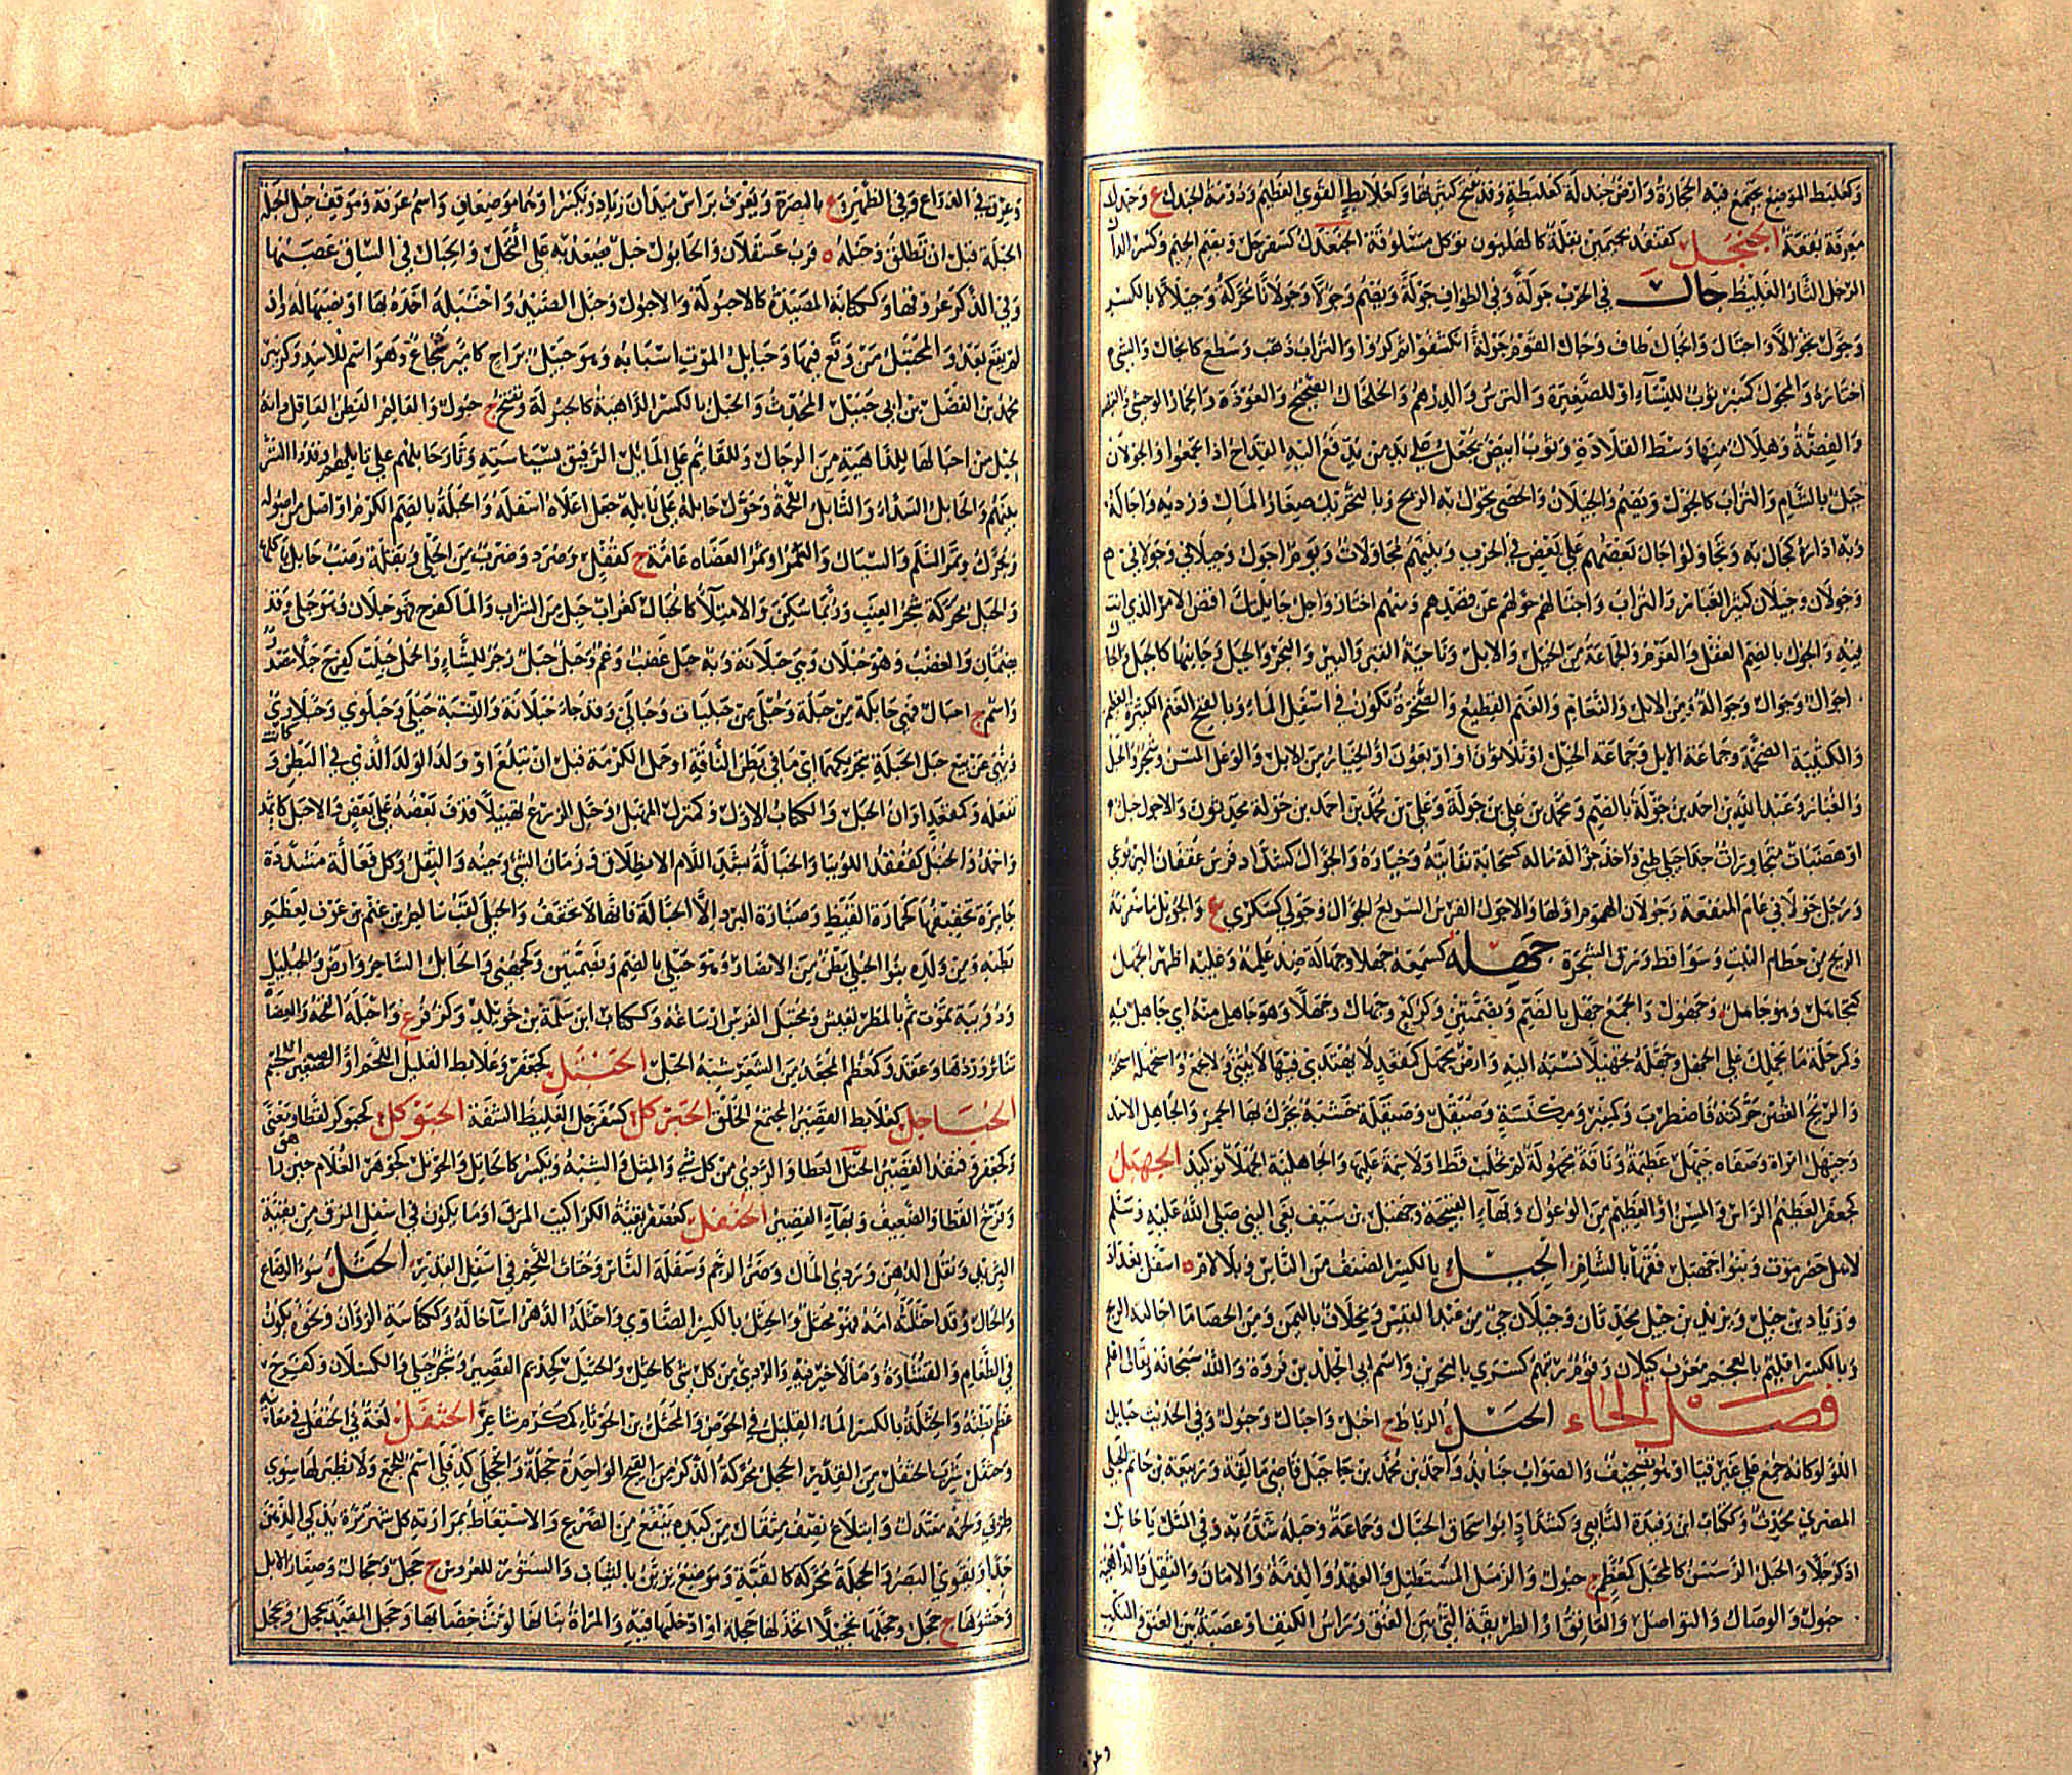 وكعلبط الموضع يجتمع فيه الحجارة وارض جندلة كعلبطة وقد تفتح كثيرتها وكعلابط القوي العظيم ودومة الجندل ع وجندل
معرفة بقعة الجنجل كقنفذ بجيمين بقلة كالهليون تؤكل مسلوقة الجنعدل كسفرجل وبضم الجيم وكسر الدال
الرجل التار الغليظ جال في الحرب جولة وفي الطواف جولة ويضم وجولا وجولانا محركة وجيلالا بالكسر
وجول تجوالا واجتال وانجال طاف وجال القوم جولة انكشفوا ثم كروا والتراب ذهب وسطع كانجال والشيء
اختاره والمجول كمنبر ثوب للنساء او للصغيرة والترس والدرهم والخلخال والعوذة والحمار الوحشي
والفضة وهلال منها وسط القلادة وثوب ابيض يجعل على يد من يدفع اليه القداح اذا تجمعوا والجولان
جبل بالشام والتراب كالجول ويضم والجيلان والحصى تجول به الريح وبالتحريك صغار المال ورديه واجاله
وبه اداره كجال به وتجاولوا جال بعضهم على بعض في الحرب وبينهم مجاولات ويوم اجول وجيلاني وجولاني
وجولان وجيلان كثير الغبار والتراب واجتالهم حولهم عن قصدهم ومنهم اختار واجل جايلتك اقض الامر الذي انت
فيه والجول بالضم العقل والعزم والجماعة من الخيل والابل وناحية القبر والبير والبحر والجبل وجانبها كالجيل والجال
اجوال وجوال وجوالة ومن الابل والنعام والغنم القطيع والصخرة تكون في اسفل الماء وبالفتح الغنم الكثيرة العظيمة
والكتيبة الضخمة وجماعة الابل وجماعة الخيل او ثلاثون او اربعون او الخيار من الابل والوعل المسن وشجر والجبل
والغبار وعبد الله بن احمد بن جولة بالضم ومحمد بن علي بن جولة وعلي بن محمد بن احمد بن جولة محدثون والاجول جبل
او هضبات متجاورات حذا جبلي طيئ واخذ جوالة ماله كسحابة نقايته وخياره والجوال كشداد فرس عقفان اليربوعي
ورجل جولاني عام المنفعة وجولان الهموم اولها والاجول الفرس السريع الجوال وجولى كسكرى ع والجويل ما سفرته
الريح من حطام النبت وسواقط ورق الشجر جهله كسمعه جهلا وجهالة ضد علمه وعليه اظهر الجهل
كتجاهل وهو جاهل وجهول والجمع جهل بالضم وبضمتين وكركع وجهال وجهلاء وهو جاهل منه اي جاهل به
وكمرحلة ما يحملك على الجهل وجهله تجهيلا نسبه اليه وارض مجهل كمقعد لا يهتدى فيها لا يثنى ولا يجمع واستجهله استخفه
والريح الغصن حركته فاضطرب وكمنبر ومكنسة وصيقل وصيقلة خشبة يحرك بها الجمر والجاهل الاسد
وجيهل امراة وصفاة جيهل عظيمة وناقة مجهولة لم تحلب قط او لا سمة عليها والجاهلية الجهلاء توكيد الجهبل
كجعفر العظيم الراس والمسن او العظيم من الوعول وبهاء القبيحة وجهبل بن سيف نعى النبي صلى الله عليه وسلم
لاهل حضرموت وبنو جهبل فقهاء بالشام الجيل بالكسر الصنف من الناس وبلا لام ه اسفل بغداد
وزياد بن جيل ويزيد بن جيل محدثان وجيلان حي من عبد القيس ومخلاف باليمن ومن الحصا ما اجالته الريح
وبالكسر اقليم بالعجم معرب كيلان وقوم رتبهم كسرى بالبحرين واسم ابي الجلد بن فروة والله سبحانه وتعالى اعلم
فصل الحاء الحبل الرباط ج احبل واحبال وحبول وفي الحديث حبايل
اللؤلؤ كانه جمع على غير قياس او هو تصحيف والصواب جنابذ واحمد بن محمد بن جبل قاضي مالقة وربيعة بن حاتم الحبلي
المصري محدث وككتاب ابن رفيدة التابعي وكشداد ابو اسحاق الحبال وجماعة وحبله شده به وفي المثل يا حابل
اذكر حلا والحبل الرسن كالمحبل كمعظم ج حبول والرمل المستطيل والعهد والذمة والامان والثقل والداهية
حبول والوصال والتواصل والعاتق او الطريقة التي بين العنق وراس الكتف او عصبة بين العنق والمنكب
وعرق في الذراع وفي الظهر وع بالبصرة ويعرف براس ميدان زياد ويكسر او هما موضعان واسم عرفة وموقف خيل الحلبة
الحلبة قبل ان تطلق وحبلة ه قرب عسقلان والحابول حبل يصعد به على النخل والحبال في الساق عصبها
وفي الذكر عروقها وككتابة المصيدة كالاحبولة والاحبول وحبل الصيد واحتبله اخذه بها او نصبها له وان
لم يقع بعد والمحتبل من وقع فيها وحبايل الموت اسبابه وهو حبيل براح كامير شجاع وهو اسم للاسد وكزبير
محمد بن الفضل بن ابي حبيل المحدث والحبل بالكسر الداهية كالحبولة وتفتح ج حبول والعالم الفطن العاقل وانه
لحبل من احبالها للداهية من الرجال وللقايم على المال الرفيق بسياسته وثار حابلهم على نابلهم اوقدوا الشر
بينهم والحابل السدى والنابل اللحمة وحول حابله على نابله جعل اعلاه اسفله والحبلة بالضم الكرم او اصل من اصوله
ويحرك وثمر السلم والسيال والسمر او ثمر العضاه عامة ج كقفل وصرد وضرب من الحلي وبقلة وضب حابل ياكلها
والحبل محركة شجر العنب وربما سكن والامتلاء كالحبال كغراب حبل من الشراب والماء كفرح فهو حبلان وهي حبلى وقد
يضمان والغضب وهو حبلان وهي حبلانة وبه حبل غضب وغم وحبل حبل زجر للشاء والحمل حبلت كفرح حبلا مصدر
واسم ج احبال فهي حابلة من حبلة وحبلى من حبليات وحبالى وقد جاء حبلانة والنسبة حبلي وحبلوي وحبلاوي
ونهى عن بيع حبل الحبلة بتحريكهما اي ما في بطن الناقة او حمل الكرمة قبل ان تبلغ او ولد الولد الذي في البطن وكانت
تفعله وكمقعد اوان الحبل والكتاب الاول وكمنزل المهبل وحبل الزرع تحبيلا قذف بعضه على بعض والاحبل كاثمد
واحمد والحنبل كقنفذ اللوبيا والحبالة بشد اللام الانطلاق وزمان الشيء وحينه والثقل وكل فعالة مشددة
جايزة تخفيفها كحمارة القيظ وصبارة البرد الا الحبالة فانها لا تخفف والحبلى لقب سالم بن غنم بن عوف لعظم
بطنه ومن ولده بنو الحبلى بطن من الانصار وهو حبلي بالضم وبضمتين وكجهني والحابل الساحر وارض والحبليل
ودويبة تموت ثم بالمطر تعيش ومحتبل الفرس ارساغه وككتاب ابن سلمة بن خويلد وكزفر ع واحبله القحه والعضاه
تناثر وردها وعقد وكمعظم المجعد من الشعر شبه الحبل الحبتل كجعفر وعلابط القليل اللحم او الصغير الجسم
الحباجل كعلابط القصير المجتمع الخلق الحبركل كسفرجل الغليظ الشفة الحبوكل كحبوكر لفظا ومعنى
وكجعفر وقنفذ القصير الحتل العطا والردي من كل شي والمثل والشبه ويكسر كالحاتل والحوتل كجوهر الغلام حين راهق
وفرخ القطا والضعيف وبهاء القصير الحتفل كقنفذ بقية المرق او ما يكون في اسفل المرق من بقية
الثريد وثفل الدهن ورديء المال وضر الرحم وسفلة الناس وحتات اللحم في اسفل القدر الحثل سوء الرضاع
والحال وقد احثلته امه فهو محثل والحثل بالكسر الضاوي واحثله الدهر اساء حاله وككناسة الزوان ونحوه يكون
في الطعام والقشارة وما لا خير فيه والردي من كل شي كالحثل والحثيل كحذيم القصير وشجر جبلي والكسلان وكفرح
عظم بطنه والحثلة بالكسر الماء القليل في الحوض والمحثل بن الحوثاء كمكرم شاعر الحثفل لغة في الحتفل في معانيه
وحثفل شرب الحثفل من القدر الحجل محركة الذكر من القبج الواحدة حجلة والحجلى كدفلى اسم للجمع ولا نظير لها سوى
ظربى ولحمه معتدل وابتلاع نصف مثقال من كبده ينفع من الصرع والاستعاط بمرارته كل شهر مرة يذكي الذهن
جدا ويقوي البصر والحجلة محركة كالقبة وموضع يزين بالثياب والستور للعروس ج حجل وحجال وصغار الابل
وحشوها ج حجل وحجلها تحجيلا اتخذ لها حجلة او ادخلها فيه والمراة بنانها لونت خضابها وحجل المقيد يحجل ويحجل
وعرق